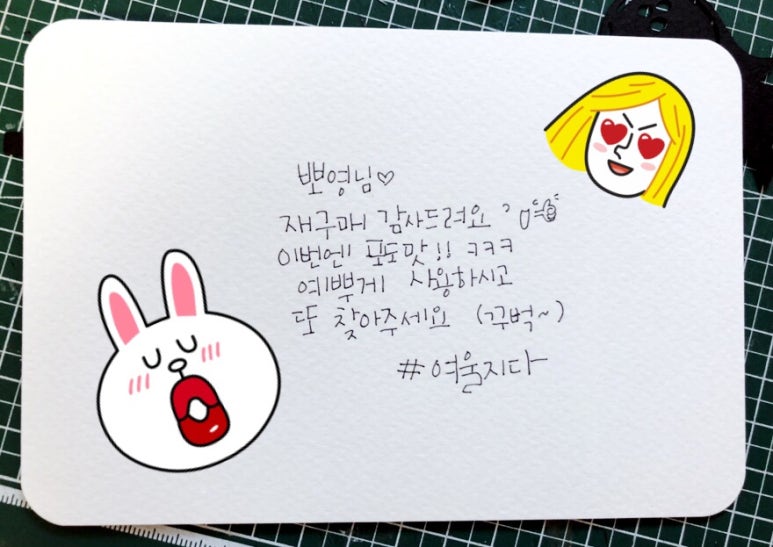 뽀영님♡
재구매 감사드려요
이번엔 포도맛!! ㅋㅋㅋ
예쁘게 사용하시고
또 찾아주세요 (꾸벅~)
#여울지다